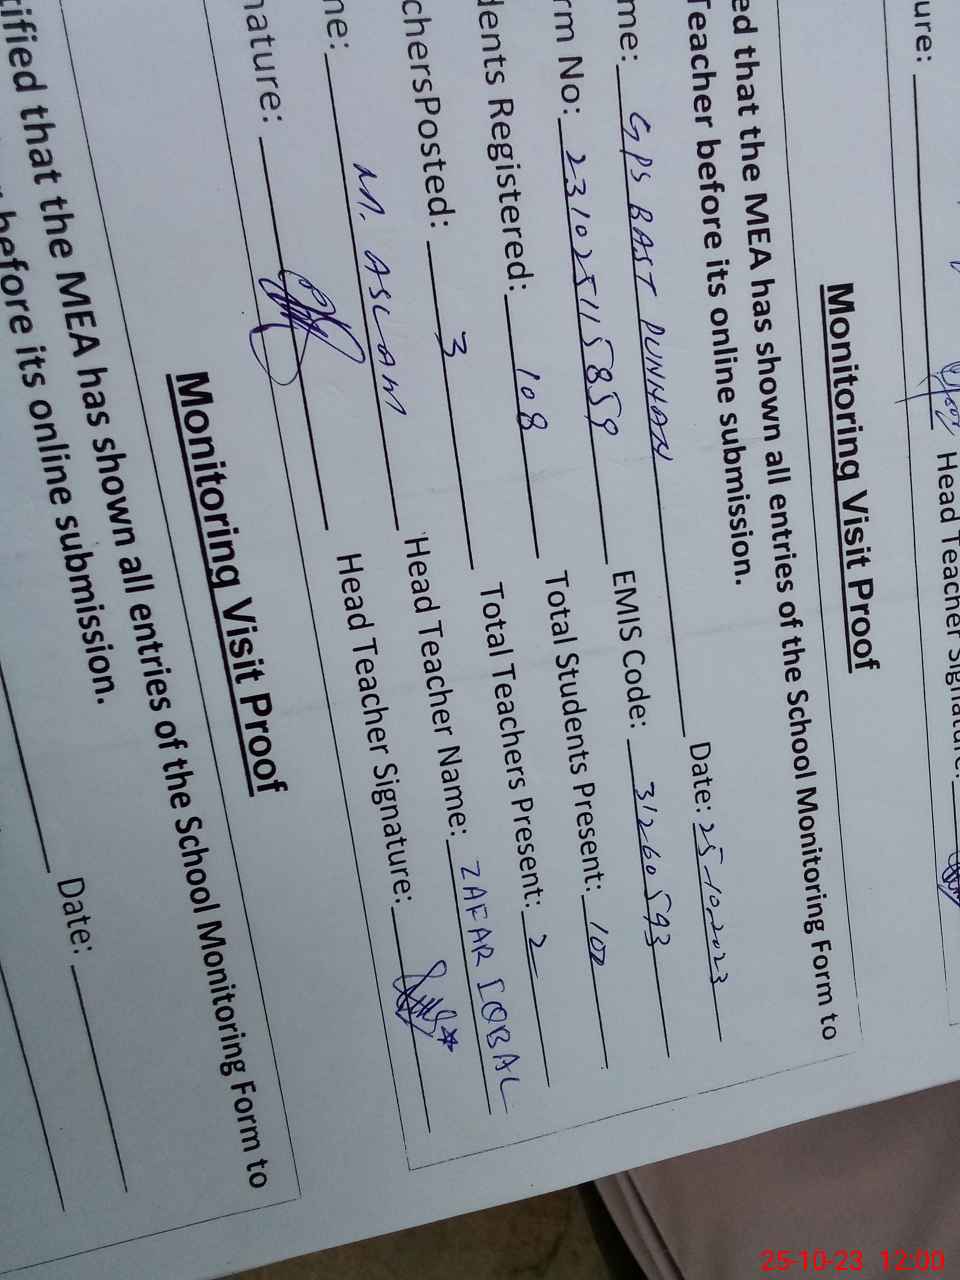 ure: Head Teacher Signature:
Monitoring Visit Proof
ed that the MEA has shown all entries of the School Monitoring Form to
Teacher before its online submission.
me: GPS BAST PUNHAN Date: 25-10-2023
rm No: 231025115859 EMIS Code: 31260593
dents Registered: 108 Total Students Present: 100
chersPosted: 3 Total Teachers Present: 2
ne: M. ASLAM Head Teacher Name: ZAFAR IQBAL
nature: Head Teacher Signature:
Monitoring Visit Proof
tified that the MEA has shown all entries of the School Monitoring Form to
before its online submission.
Date:
25-10-23 12:00